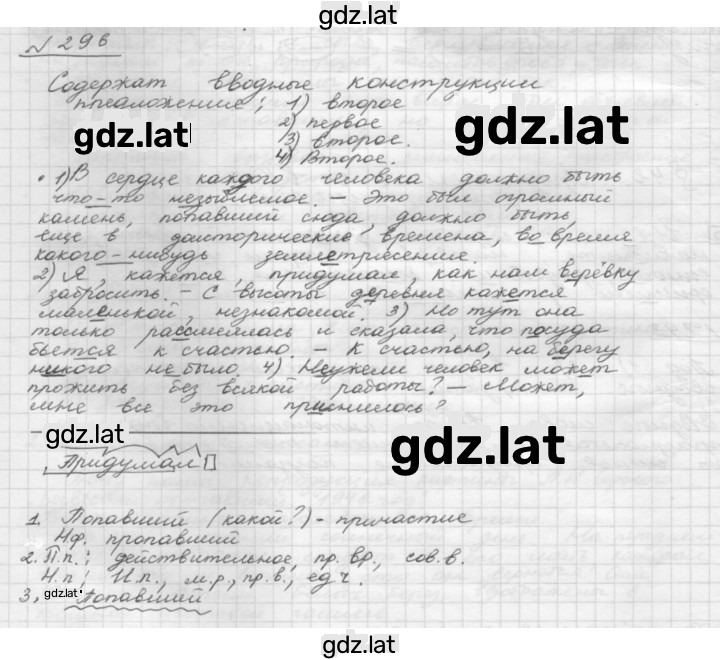 gdz.lat
№ 296
Содержат вводные конструкции
предложение; 1) второе
2) первое
gdz.lat
gdz.lat
3) второе.
4) Второе.
• 1) В сердце каждого человека должно быть
что-то незыблемое. – Это был огромный
камень, попавший сюда, должно быть,
еще в доисторические времена, во время
какого-нибудь землетрясения.
2) Я, кажется, придумал, как нам верёвку
забросить. – С высоты деревня кажется
маленькой, незнакомой. 3) Но тут она
только рассмеялась и сказала, что посуда
бьется к счастью. – К счастью, на берегу
никого не было. 4) Неужели человек может
прожить без всякой работы? – Может,
мне все это приснилось?
gdz.lat
gdz.lat
Придумал
1. Попавший (какой?) - причастие
Н.ф. пропавший
2. П.п.; действительное, пр. вр., сов. в.
Н.п; И.п., м.р., пр.в., ед.ч.
3, gdz.lat Попавший
gdz.lat